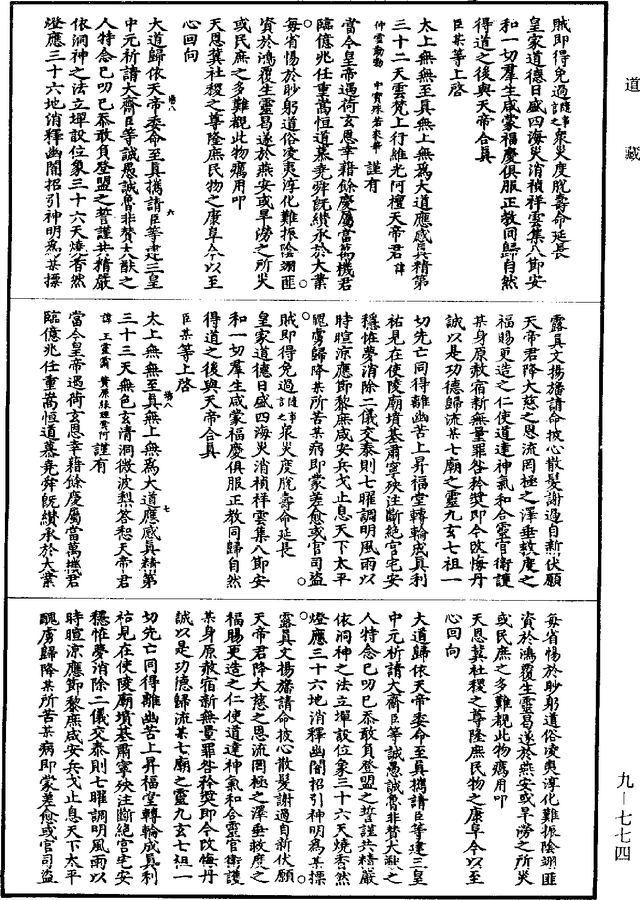 道藏
賊即得免過隨事言之衆災度脫壽命延長
皇家道德日盛四海災消禎祥雲集八節安
和一切羣生咸蒙福慶俱服正教同歸自然
得道之後與天帝合真
臣某等上啓
太上無無至真無上無為大道應感真精第
三十二天雲梵上行維光阿檀天帝君諱
謹有
當今皇帝遇荷玄恩幸藉餘慶屬當萬機君
臨億兆任重嵩恒道慕堯舜既纘承於大業
每省惕於眇躬道俗凌夷淳化難振陰翊匪
資於鴻覆生靈曷遂於燕安或旱澇之所災
或民庶之多難覩此物癘用叩
天恩冀社稷之尊隆庶民物之康阜今以至
心回向
大道歸依天帝委命至真攜請臣等建三皇
中元祈請大齋臣等誠愚誠魯非替大猷之
人特念已叨已忝敢負登盟之誓謹共精嚴
依洞神之法立壇設位象三十六天燒香然
燈應三十六地消釋幽闇招引神明為某摽
露真文揚旛請命披心散髮謝過自新伏願
天帝君降大慈之恩流罔極之澤垂救度之
福賜更造之仁使道達神氣和合靈官衛護
某身原赦宿新無量罪咎矜獎即令改悔丹
誠以是功德歸流某七廟之靈九玄七祖一
切先亡同得離幽苦上昇福堂轉輪成真利
祐見在使陵廟墳墓肅寧殃注斷絕宮宅安
穩恠夢消除二儀交泰則七曜調明風雨以
時暄涼應節黎庶咸安兵戈止息天下太平
醜虜歸降某所苦某病即蒙差愈或官司盜
賊即得免過隨事言之衆災度脫壽命延長
皇家道德日盛四海災消禎祥雲集八節安
和一切羣生咸蒙福慶俱服正教同歸自然
得道之後與天帝合真
臣某等上啓
太上無無至真無上無為大道應感真精第
三十三天無色玄清洞微波梨答惒天帝君
諱 謹有
當今皇帝遇荷玄恩幸藉餘慶屬當萬機君
臨億兆任重嵩恒道慕堯舜既纘承於大業
每省惕於眇躬道俗凌夷淳化難振陰翊匪
資於鴻覆生靈曷遂於燕安或旱澇之所災
或民庶之多難覩此物癘用叩
天恩冀社稷之尊隆庶民物之康阜今以至
心回向
大道歸依天帝委命至真攜請臣等建三皇
中元祈請大齋臣等誠愚誠魯非替大猷之
人特念已叨已忝敢負登盟之誓謹共精嚴
依洞神之法立壇設位象三十六天燒香然
燈應三十六地消釋幽闇招引神明為某摽
露真文揚旛請命披心散髮謝過自新伏願
天帝君降大慈之恩流罔極之澤垂救度之
福賜更造之仁使道達神氣和合靈官衛護
某身原赦宿新無量罪咎矜獎即令改悔丹
誠以是功德歸流某七廟之靈九玄七祖一
切先亡同得離幽苦上昇福堂轉輪成真利
祐見在使陵廟墳墓肅寧殃注斷絕宮宅安
穩恠夢消除二儀交泰則七曜調明風雨以
時暄涼應節黎庶咸安兵戈止息天下太平
醜虜歸降某所苦某病即蒙差愈或官司盜
九—七七四